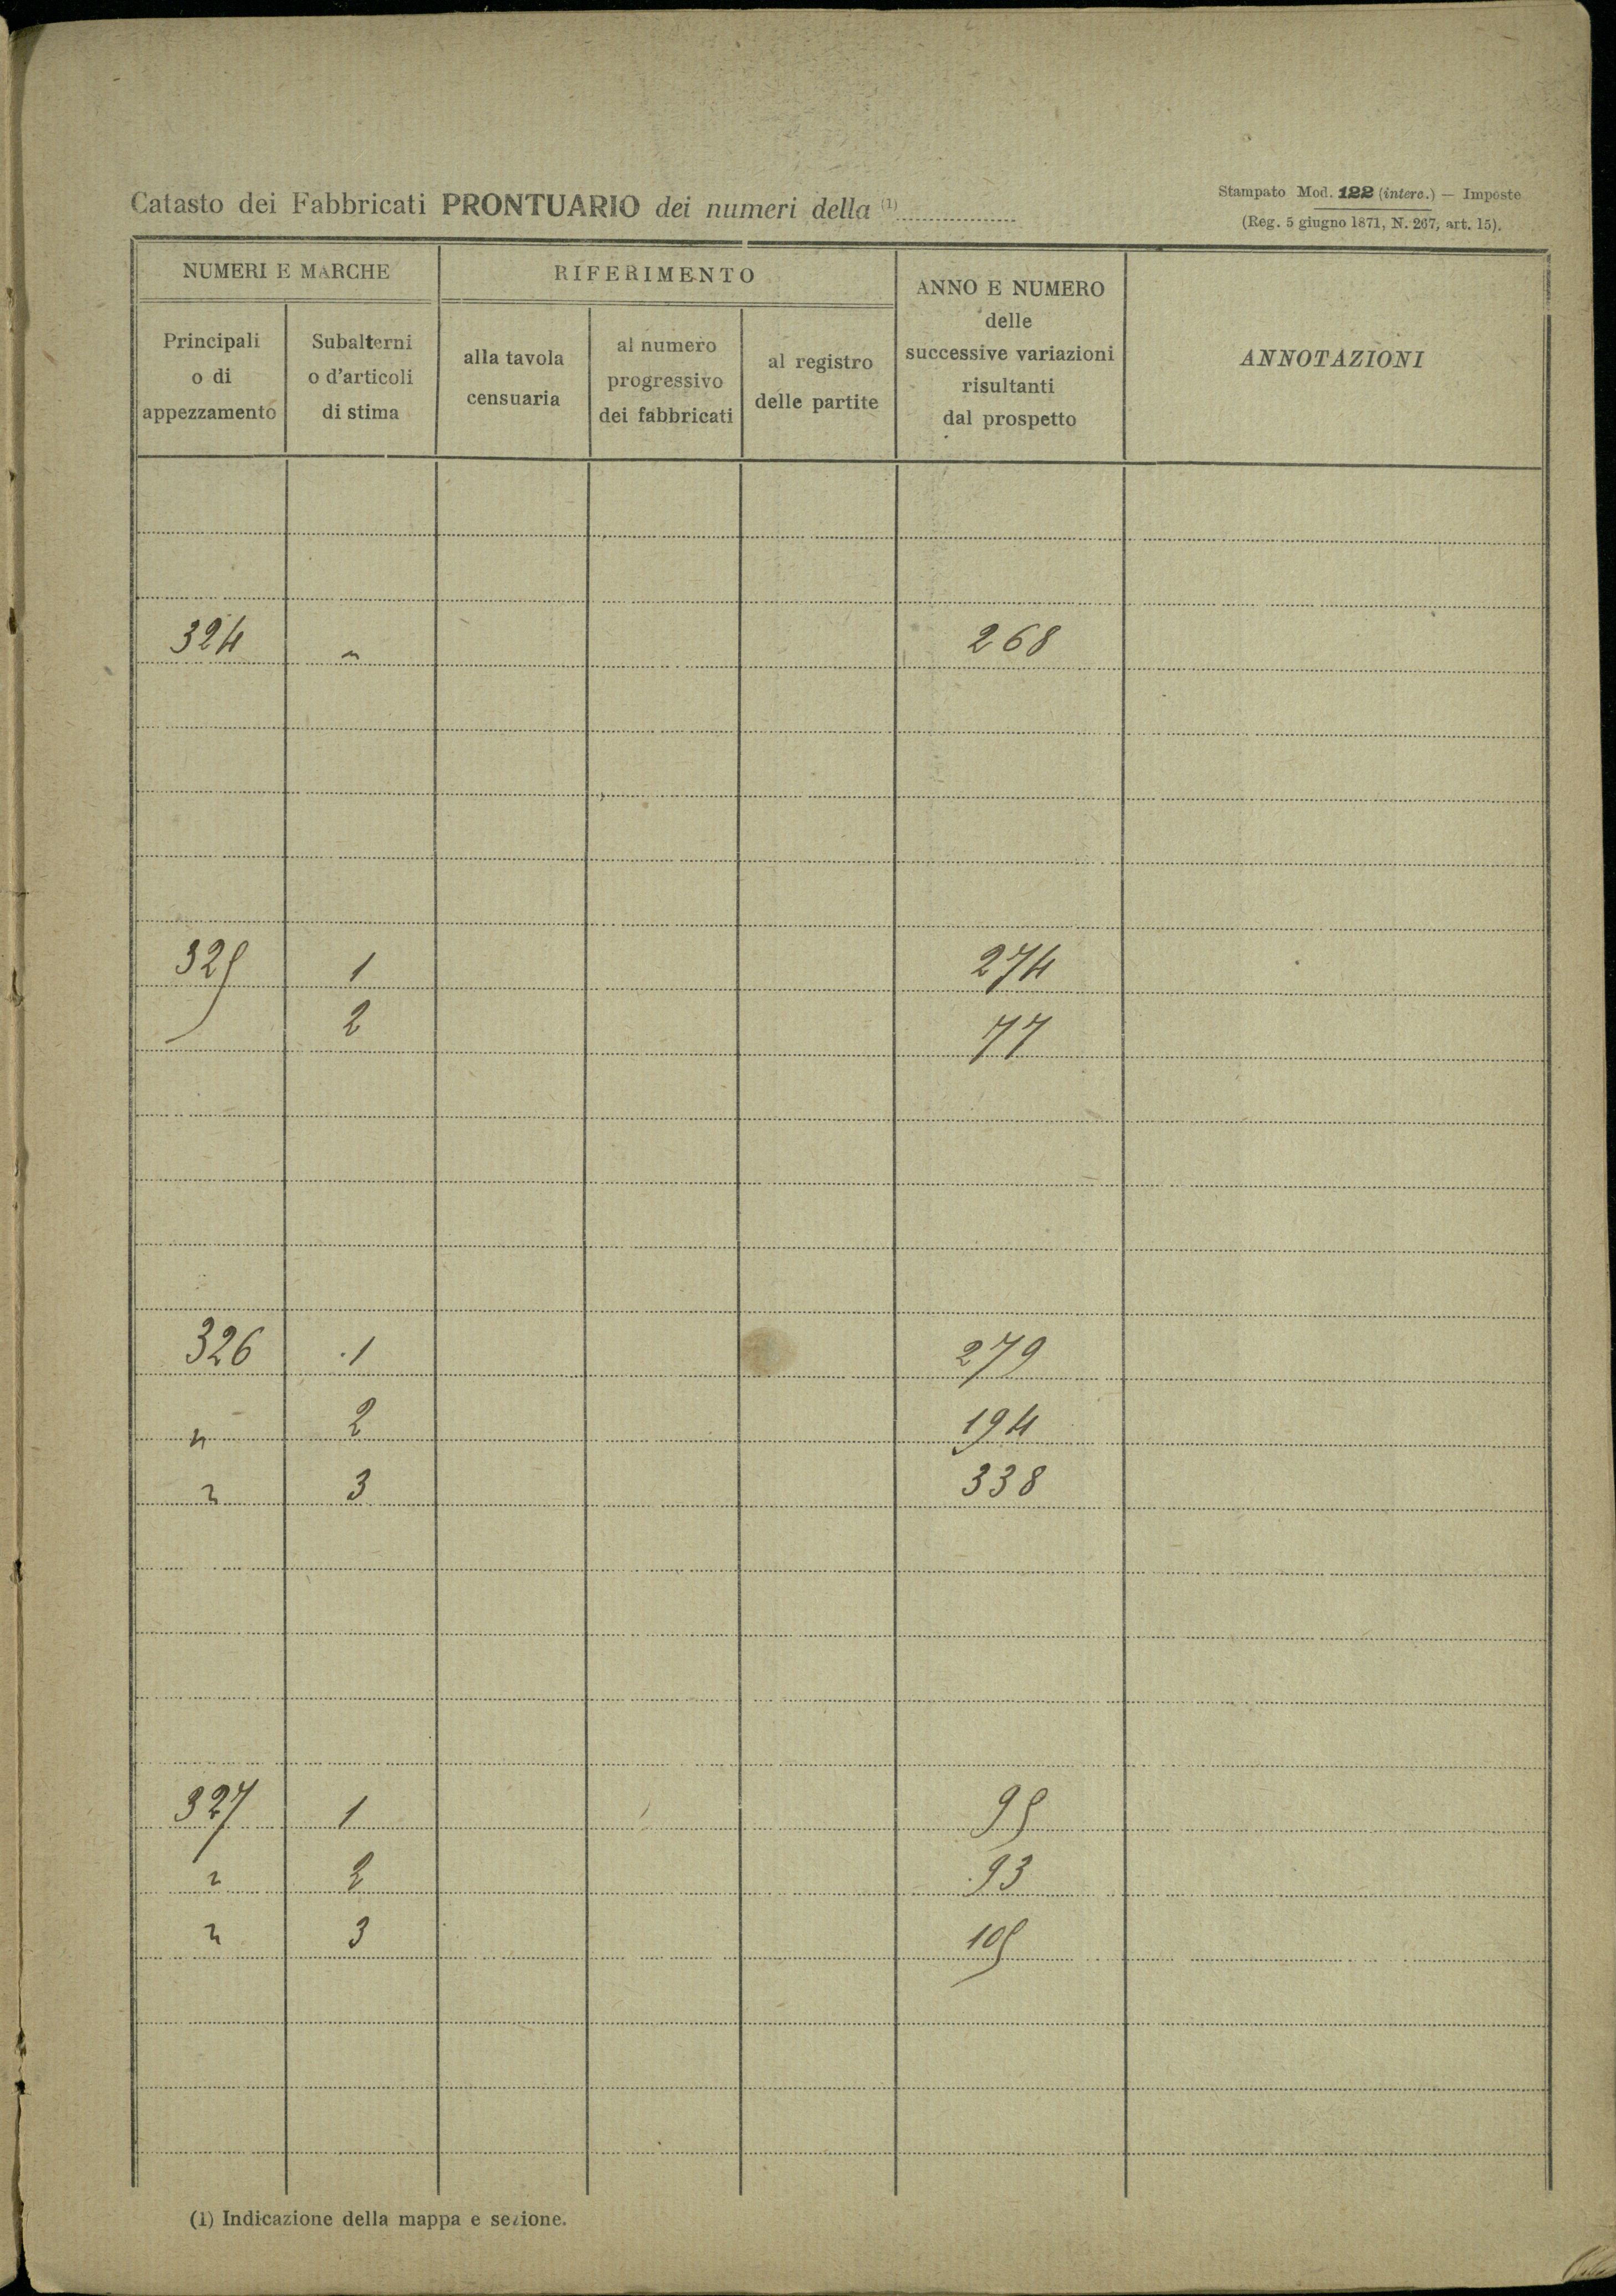 Catasto dei Fabbricati PRONTUARIO dei numeri della (1)
Stampato Mod. 122 (interc.) — Imposte
(Reg. 5 giugno 1871, N. 267, art. 15).
NUMERI E MARCHE
RIFERIMENTO
ANNO E NUMERO
delle
successive variazioni
risultanti
dal prospetto
ANNOTAZIONI
Principali
o di
appezzamento
Subalterni
o d'articoli
di stima
alla tavola
censuaria
al numero
progressivo
dei fabbricati
al registro
delle partite
324 " 268
325 1 274
2 77
326 1 279
" 2 194
" 3 338
327 1 95
" 2 93
" 3 105
(1) Indicazione della mappa e sezione.